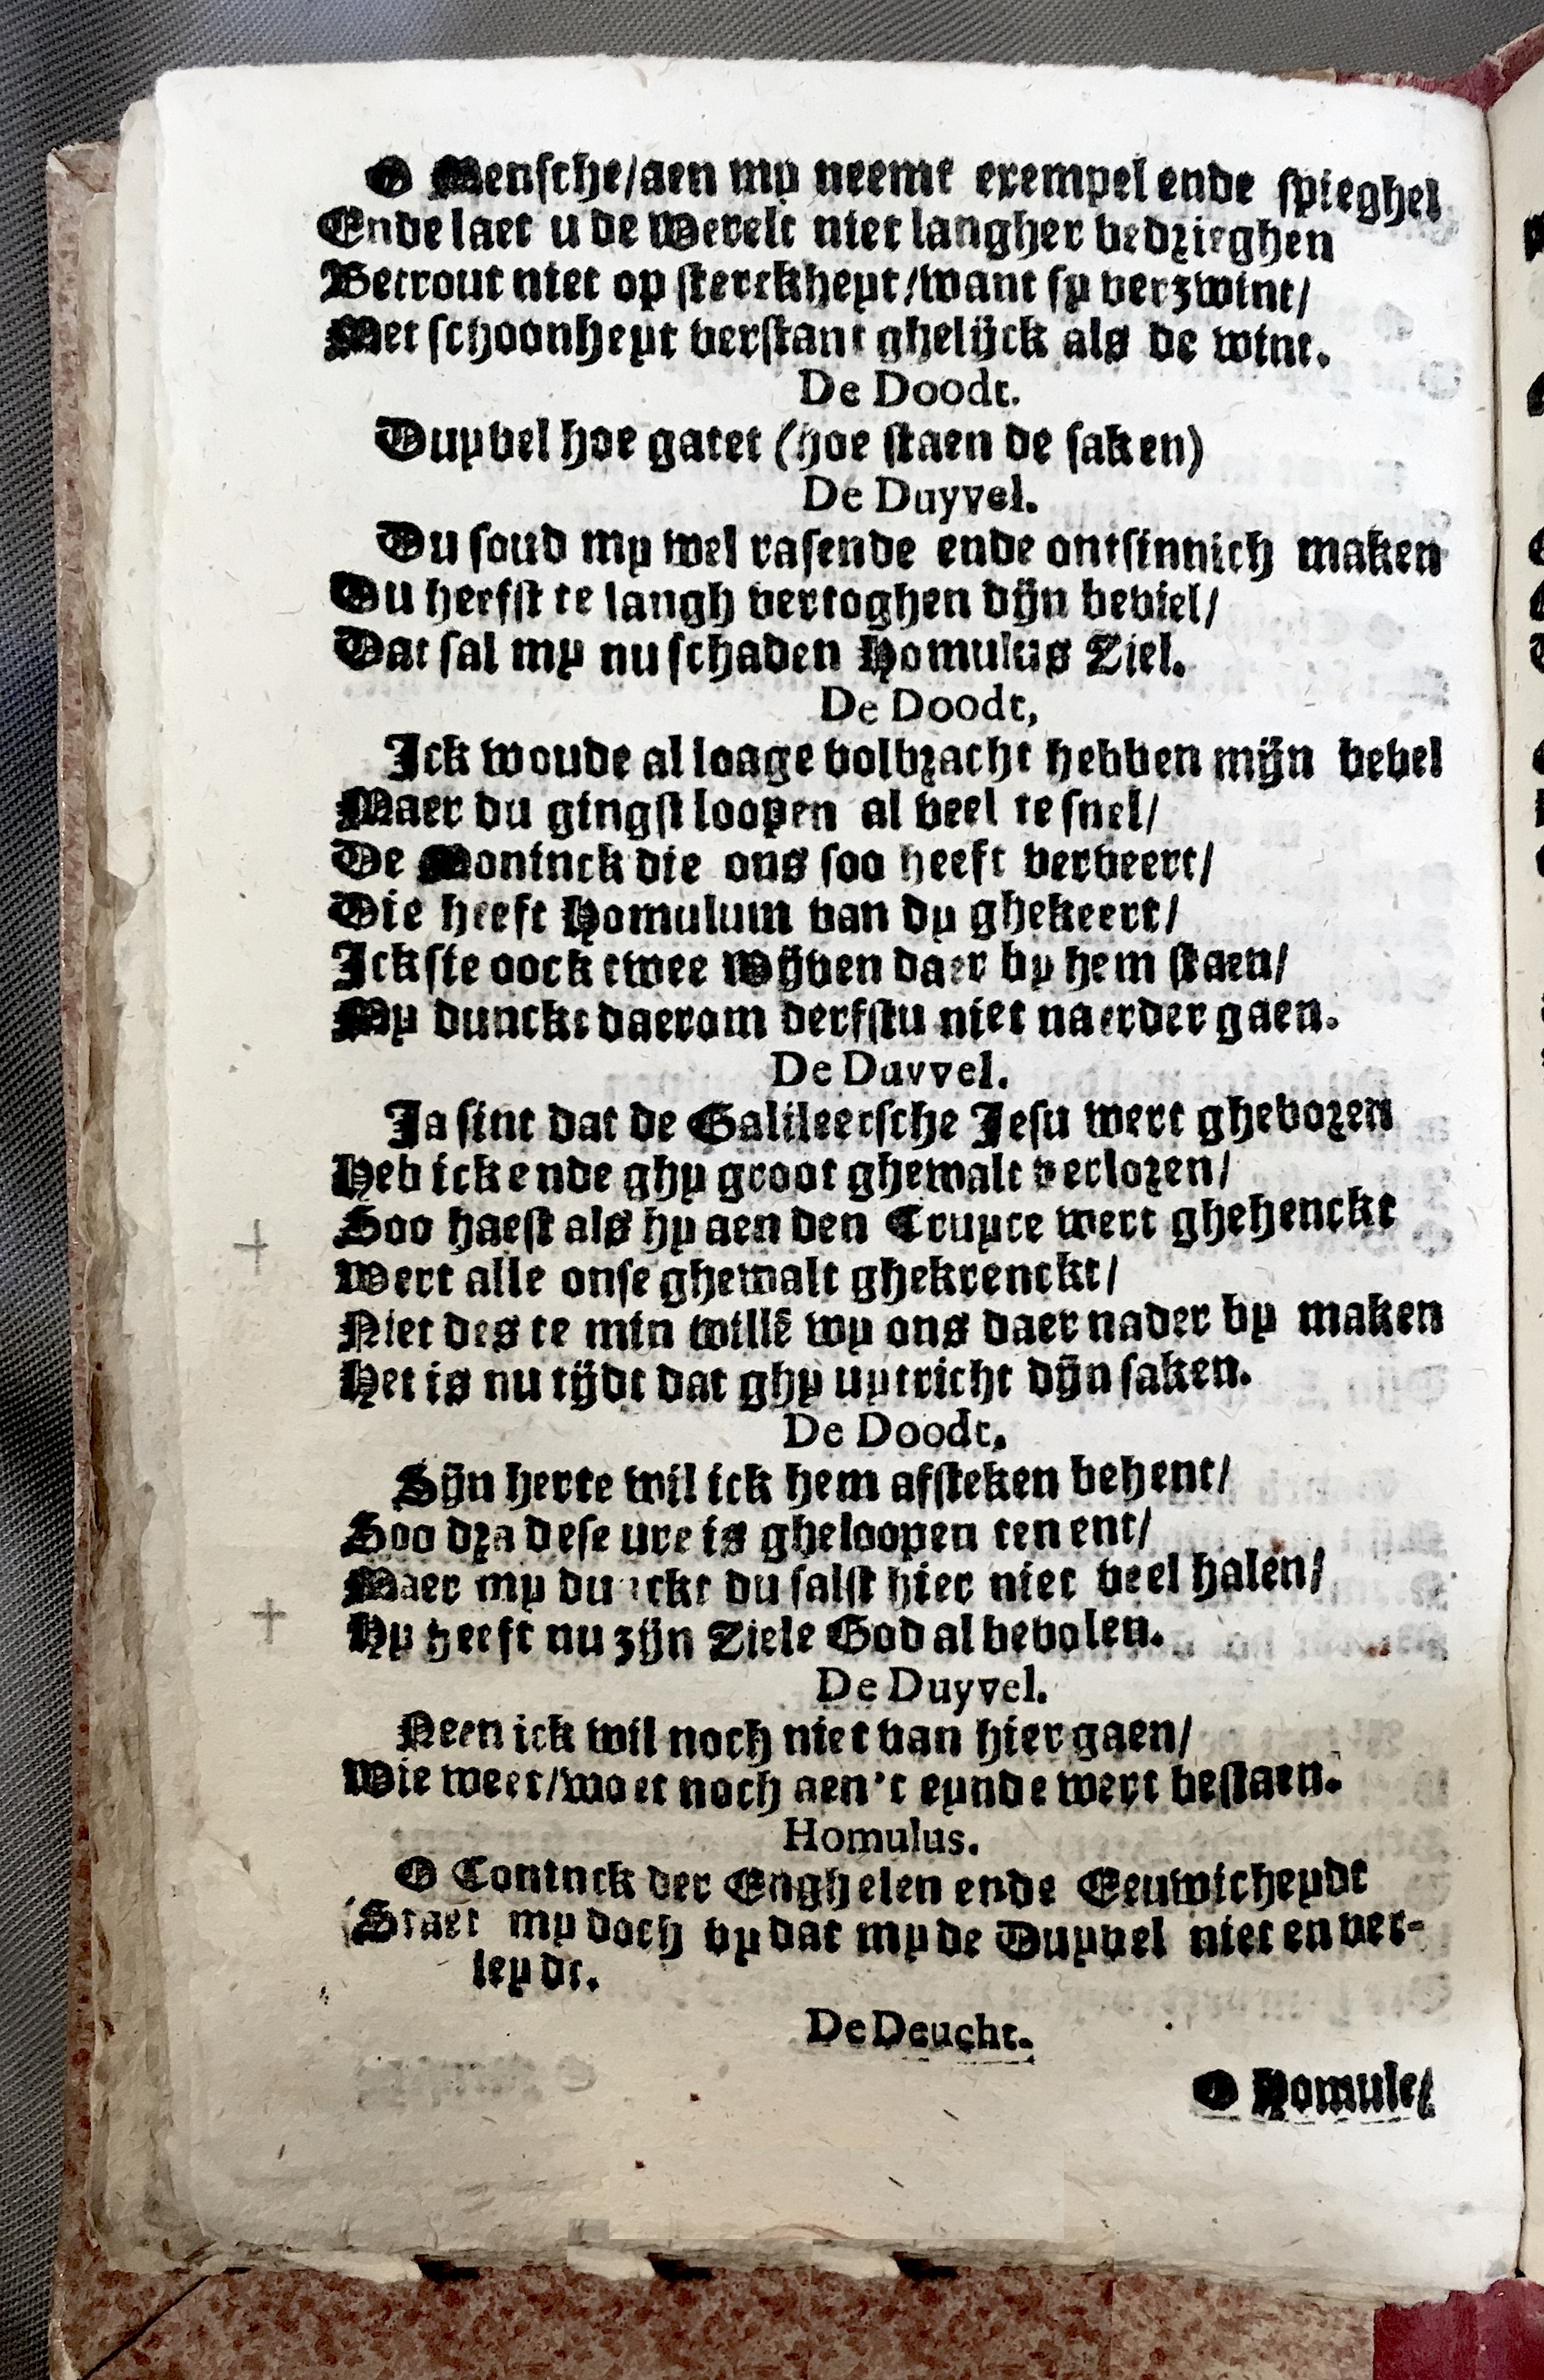 O Mensche/aen my neemt exempel ende spieghel
Ende laet u de Werelt niet langher bedrieghen
Betrout niet op sterckheyt/want sy verzwint/
Met schoonheyt verstant ghelijck als de wint.
De Doodt.
Duyvel hoe gatet (hoe staen de saken)
De Duyvel.
Du soud my wel rasende ende ontsinnich maken
Du heefst te langh vertoghen dijn beviel/
Dat sal my nu schaden Homulus Ziel.
De Doodt,
Ick woude al loage volbracht hebben mijn bevel
Maer du gingst loopen al veel te snel/
De Moninck die ons soo heeft verveert/
Die heeft Homulum van dy ghekeert/
Ick sie oock twee Wijven daer by hem staen/
My dunckt daerom derfstu niet naerder gaen.
De Duyvel.
Ja sint dat de Galileersche Jesu wert gheboren
Heb ick ende ghy groot ghewalt verloren/
Soo haest als hy aen den Cruyce wert ghehenckt
Wert alle onse ghewalt ghekrenckt/
Niet des te min willē wy ons daer nader by maken
Het is nu tijdt dat ghy uytricht dijn saken.
De Doodt.
Sijn herte wil ick hem afsteken behent/
Soo dra dese ure is gheloopen ten ent/
Maer my dunckt du salst hier niet veel halen/
Hy heeft nu zijn Ziele God al bevolen.
De Duyvel.
Neen ick wil noch niet van hier gaen/
Wie weet/wo et noch aen't eynde wert bestaen.
Homulus.
O Coninck der Enghelen ende Eeuwicheydt
Staet my doch by dat my de Duyvel niet en ver-
leydt.
De Deucht.
O Homule/